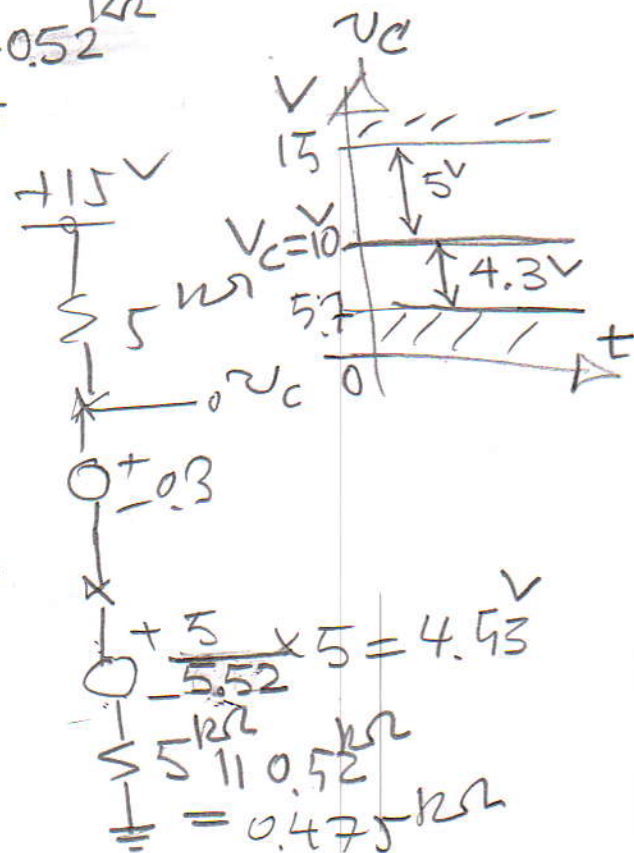 0.52 kΩ
v_C
V
15
5 V
V_C = 10 V
4.3 V
5.7
t
0
+15 V
5 kΩ
v_C
+
- 0.3
+ 5/5.52 × 5 = 4.53 V
-
5 kΩ || 0.52 kΩ
= 0.475 kΩ